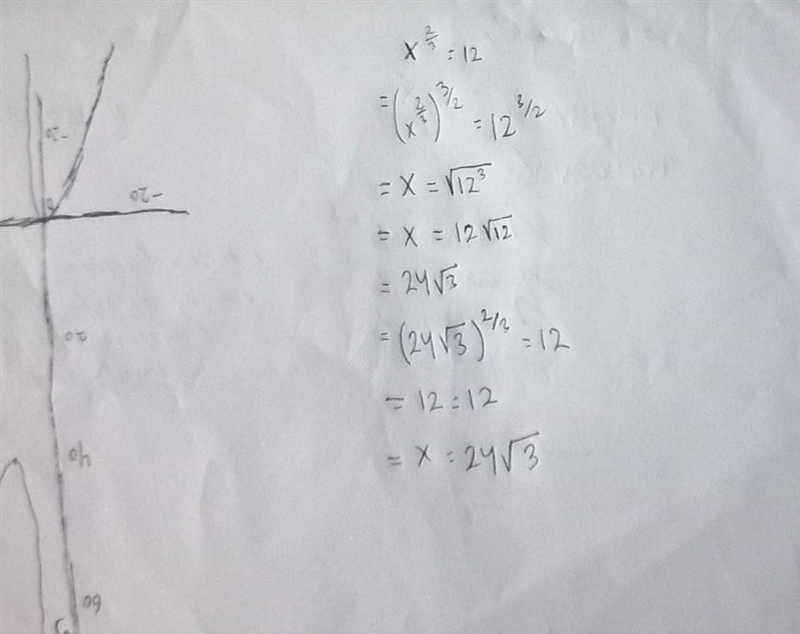 x^{2/3} = 12
= (x^{2/3})^{3/2} = 12^{3/2}
= x = √12³
= x = 12√12
= 24√3
= (24√3)^{2/3} = 12
= 12 = 12
= x = 24√3
-20
-20
20
40
60